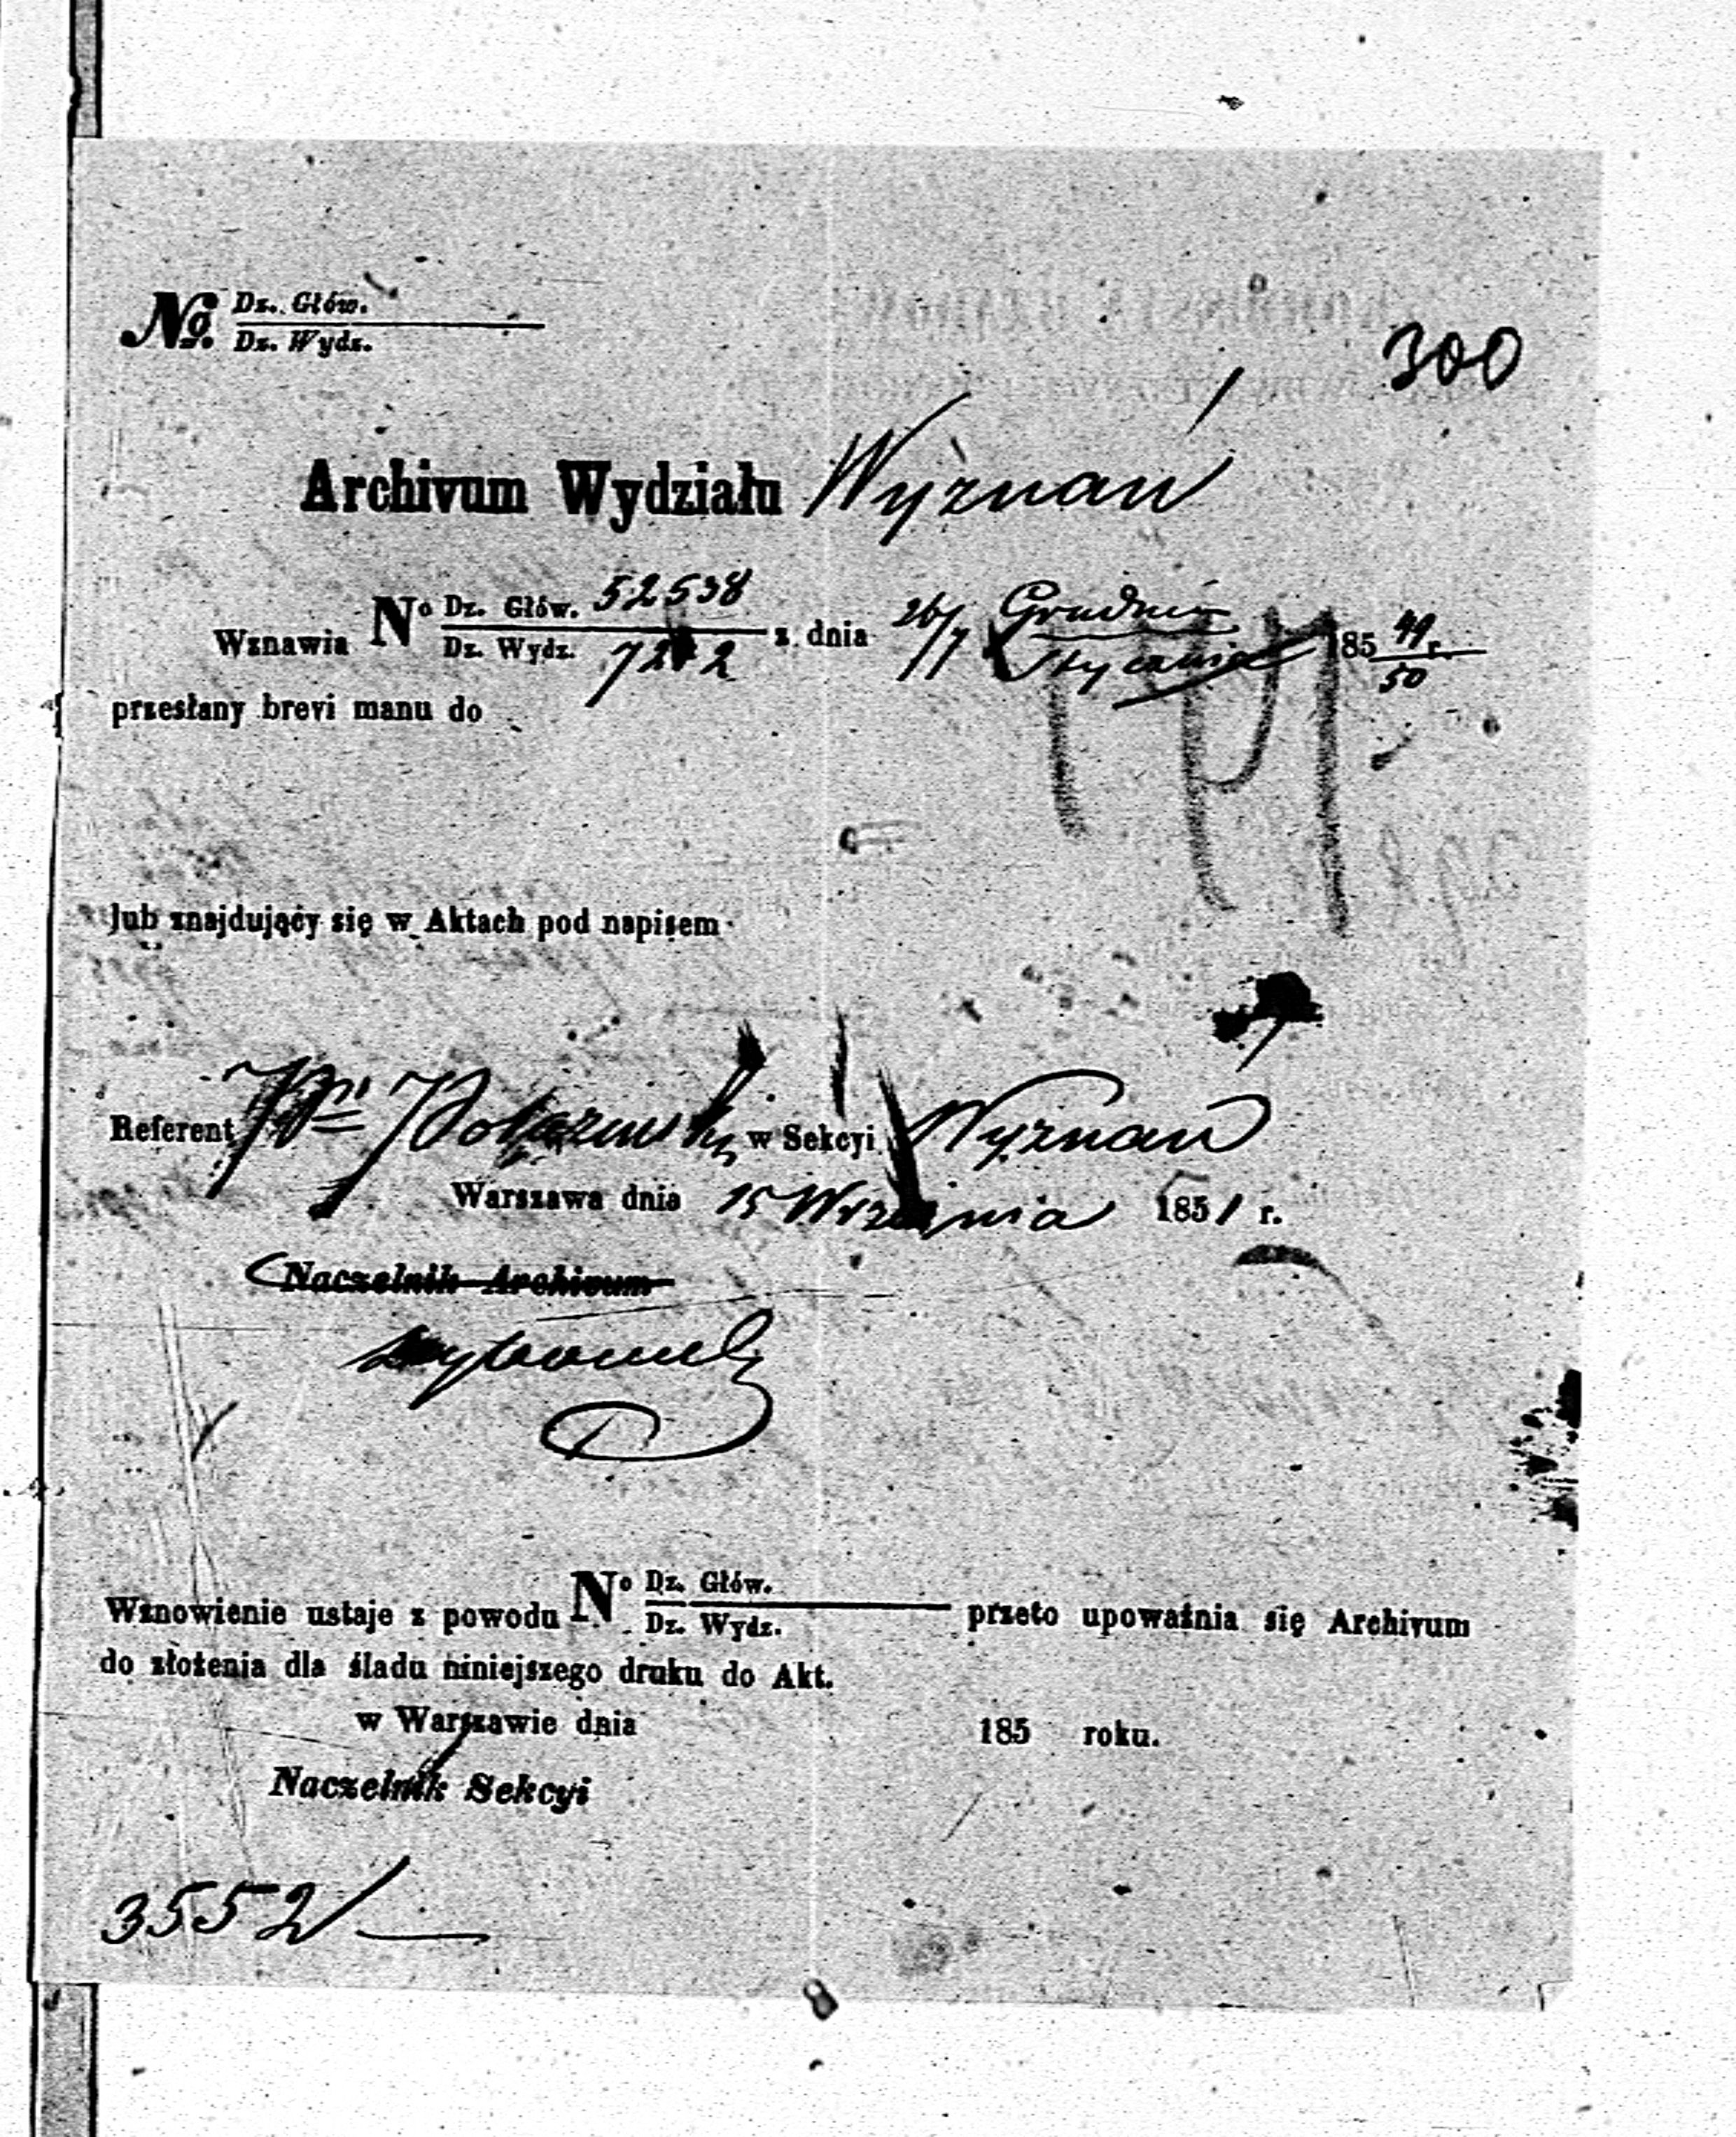 No. Dz. Głów.
Dz. Wydz.
300
Archivum Wydziału Wyznań
Wznawia No Dz. Głów. 52538 z dnia 26/7 Grudnia 185 49 r.
Dz. Wydz. Stycznia 50
przesłany brevi manu do
lub znajdujący się w Aktach pod napisem
Referent w Sekcyi Wyznań
Warszawa dnia 15 Września 1851 r.
Naczelnik Archivum
Wznowienie ustaje z powodu No Dz. Głów. przeto upoważnia się Archivum
Dz. Wydz.
do złożenia dla śladu niniejszego druku do Akt.
w Warszawie dnia 185 roku.
Naczelnik Sekcyi
3552